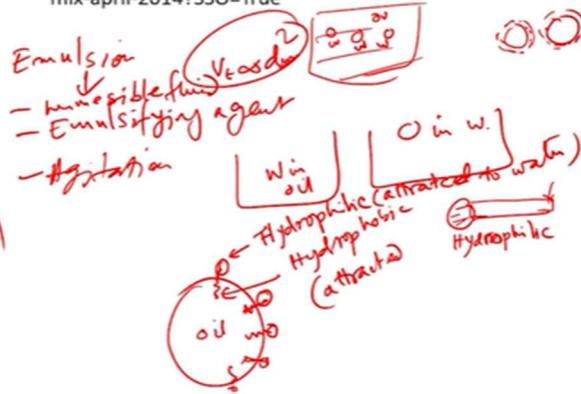 mix-april-2014?SSO=True
Emulsion
- immesible fluid
- Emulsifying agent
- Agitation
V ∝ d²
W in
oil
O in W.
Hydrophilic (attrated to water)
Hydrophobic
(attracted
Hydrophilic
oil